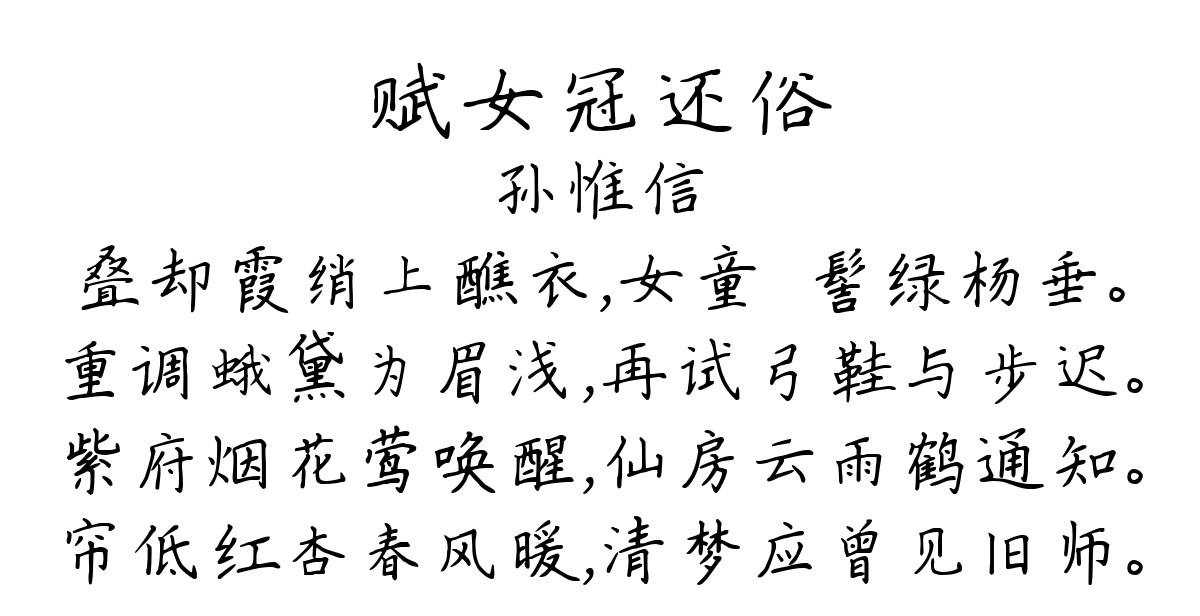 赋女冠还俗
孙惟信
叠却霞绡上醮衣,女童 髻绿杨垂。
重调蛾黛为眉浅,再试弓鞋与步迟。
紫府烟花莺唤醒,仙房云雨鹤通知。
帘低红杏春风暖,清梦应曾见旧师。